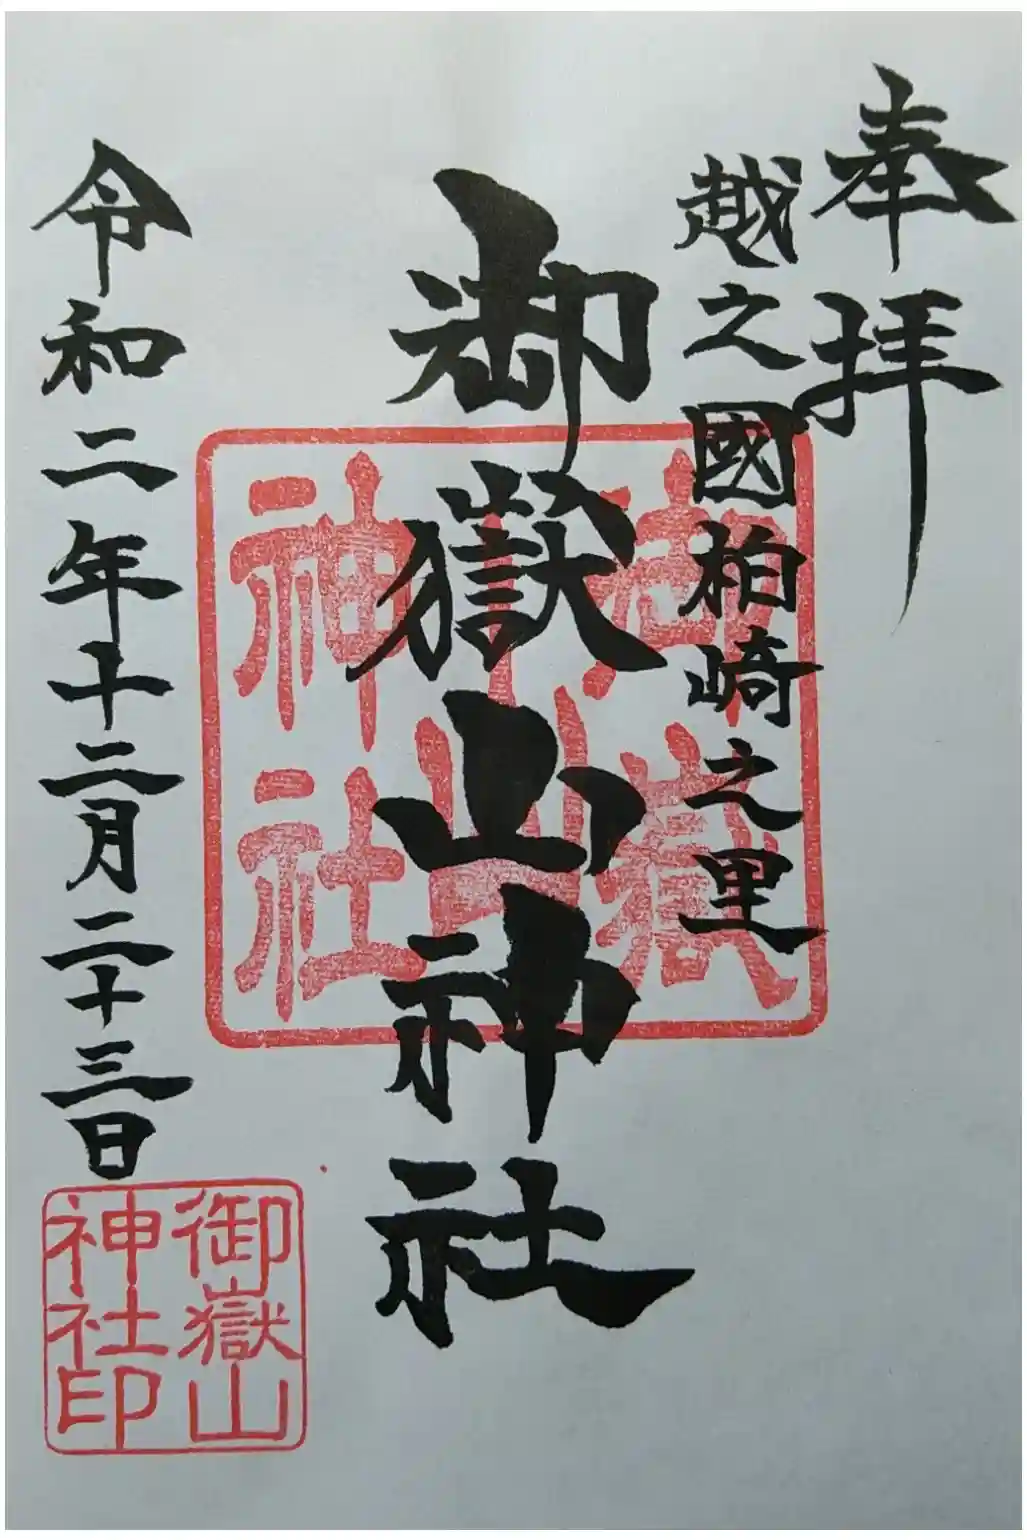 奉拝
越之國柏崎之里
御嶽山神社
令和二年十二月二十三日
御嶽
山
神社
御嶽山
神社印